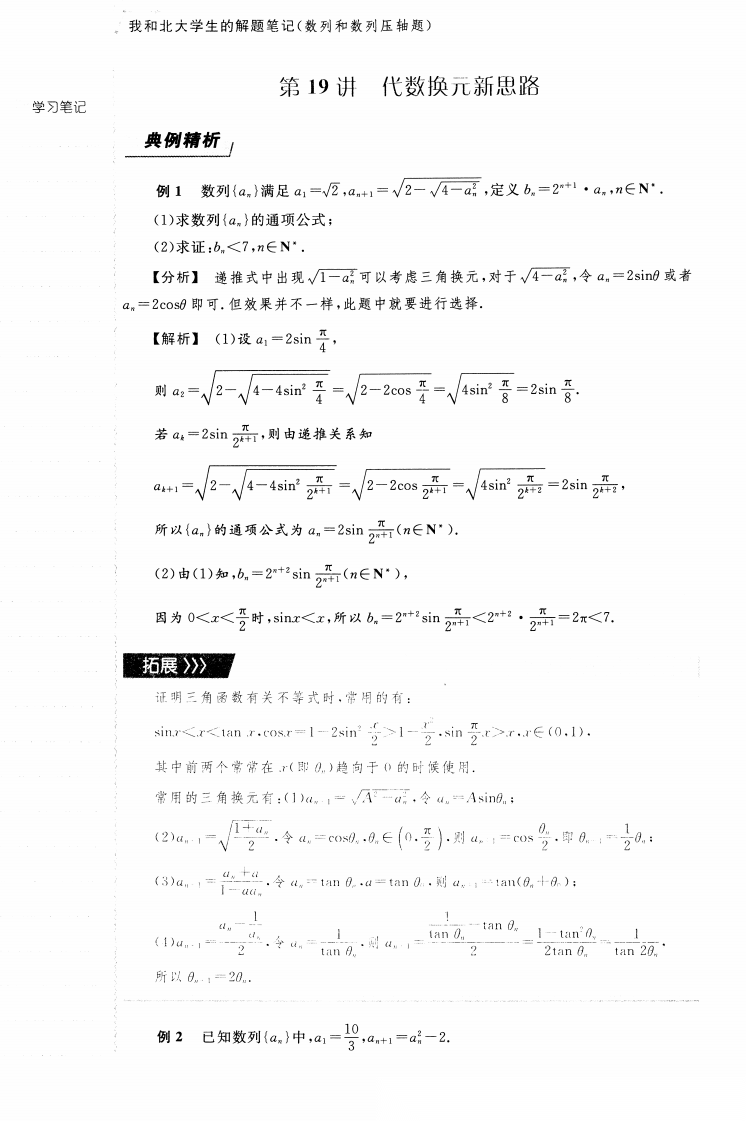 我和北大学生的解题笔记(数列和数列压轴题)
第 19 讲 代数换元新思路
学习笔记
典例精析
例 1 数列{aₙ}满足 a₁=√2,aₙ₊₁=√(2-√(4-aₙ²)),定义 bₙ=2ⁿ⁺¹·aₙ,n∈N*.
(1)求数列{aₙ}的通项公式;
(2)求证:bₙ<7,n∈N*.
【分析】 递推式中出现√(1-aₙ²)可以考虑三角换元,对于√(4-aₙ²),令 aₙ=2sinθ 或者
aₙ=2cosθ 即可.但效果并不一样,此题中就要进行选择.
【解析】 (1)设 a₁=2sin π/4,
则 a₂=√(2-√(4-4sin² π/4))=√(2-2cos π/4)=√(4sin² π/8)=2sin π/8.
若 aₖ=2sin π/2ᵏ⁺¹,则由递推关系知
aₖ₊₁=√(2-√(4-4sin² π/2ᵏ⁺¹))=√(2-2cos π/2ᵏ⁺¹)=√(4sin² π/2ᵏ⁺²)=2sin π/2ᵏ⁺²,
所以{aₙ}的通项公式为 aₙ=2sin π/2ⁿ⁺¹(n∈N*).
(2)由(1)知,bₙ=2ⁿ⁺²sin π/2ⁿ⁺¹(n∈N*),
因为 0<x<π/2时,sinx<x,所以 bₙ=2ⁿ⁺²sin π/2ⁿ⁺¹<2ⁿ⁺²·π/2ⁿ⁺¹=2π<7.
拓展 》》》
证明三角函数有关不等式时,常用的有:
sinx<x<tan x,cosx=1-2sin² x/2>1-x²/2,sin π/2 x>x,x∈(0,1).
其中前两个常常在 x(即 θₙ)趋向于 0 的时候使用.
常用的三角换元有:(1)aₙ₊₁=√(A²-aₙ²),令 aₙ=Asinθₙ;
(2)aₙ₊₁=√((1+aₙ)/2),令 aₙ=cosθₙ,θₙ∈(0,π/2),则 aₙ₊₁=cos θₙ/2,即 θₙ₊₁=1/2 θₙ;
(3)aₙ₊₁=(aₙ+a)/(1-aaₙ),令 aₙ=tan θₙ,a=tan θ,则 aₙ₊₁=tan(θₙ+θ);
(4)aₙ₊₁=(aₙ-1/aₙ)/2,令 aₙ=1/tan θₙ,则 aₙ₊₁=(1/tan θₙ-tan θₙ)/2=(1-tan²θₙ)/(2tan θₙ)=1/tan 2θₙ,
所以 θₙ₊₁=2θₙ.
例 2 已知数列{aₙ}中,a₁=10/3,aₙ₊₁=aₙ²-2.